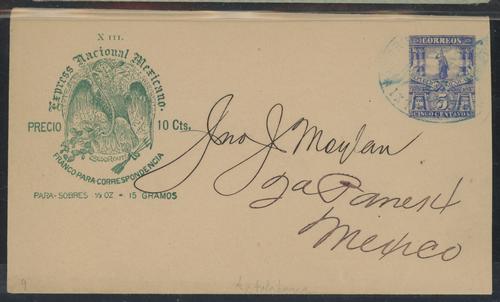 X III.
Express Nacional Mexicano.
PRECIO 10 Cts.
FRANCO PARA CORRESPONDENCIA
PARA-SOBRES ½ OZ - 15 GRAMOS
CORREOS
5
CINCO CENTAVOS
Jno J. Moylan
Mexico
9